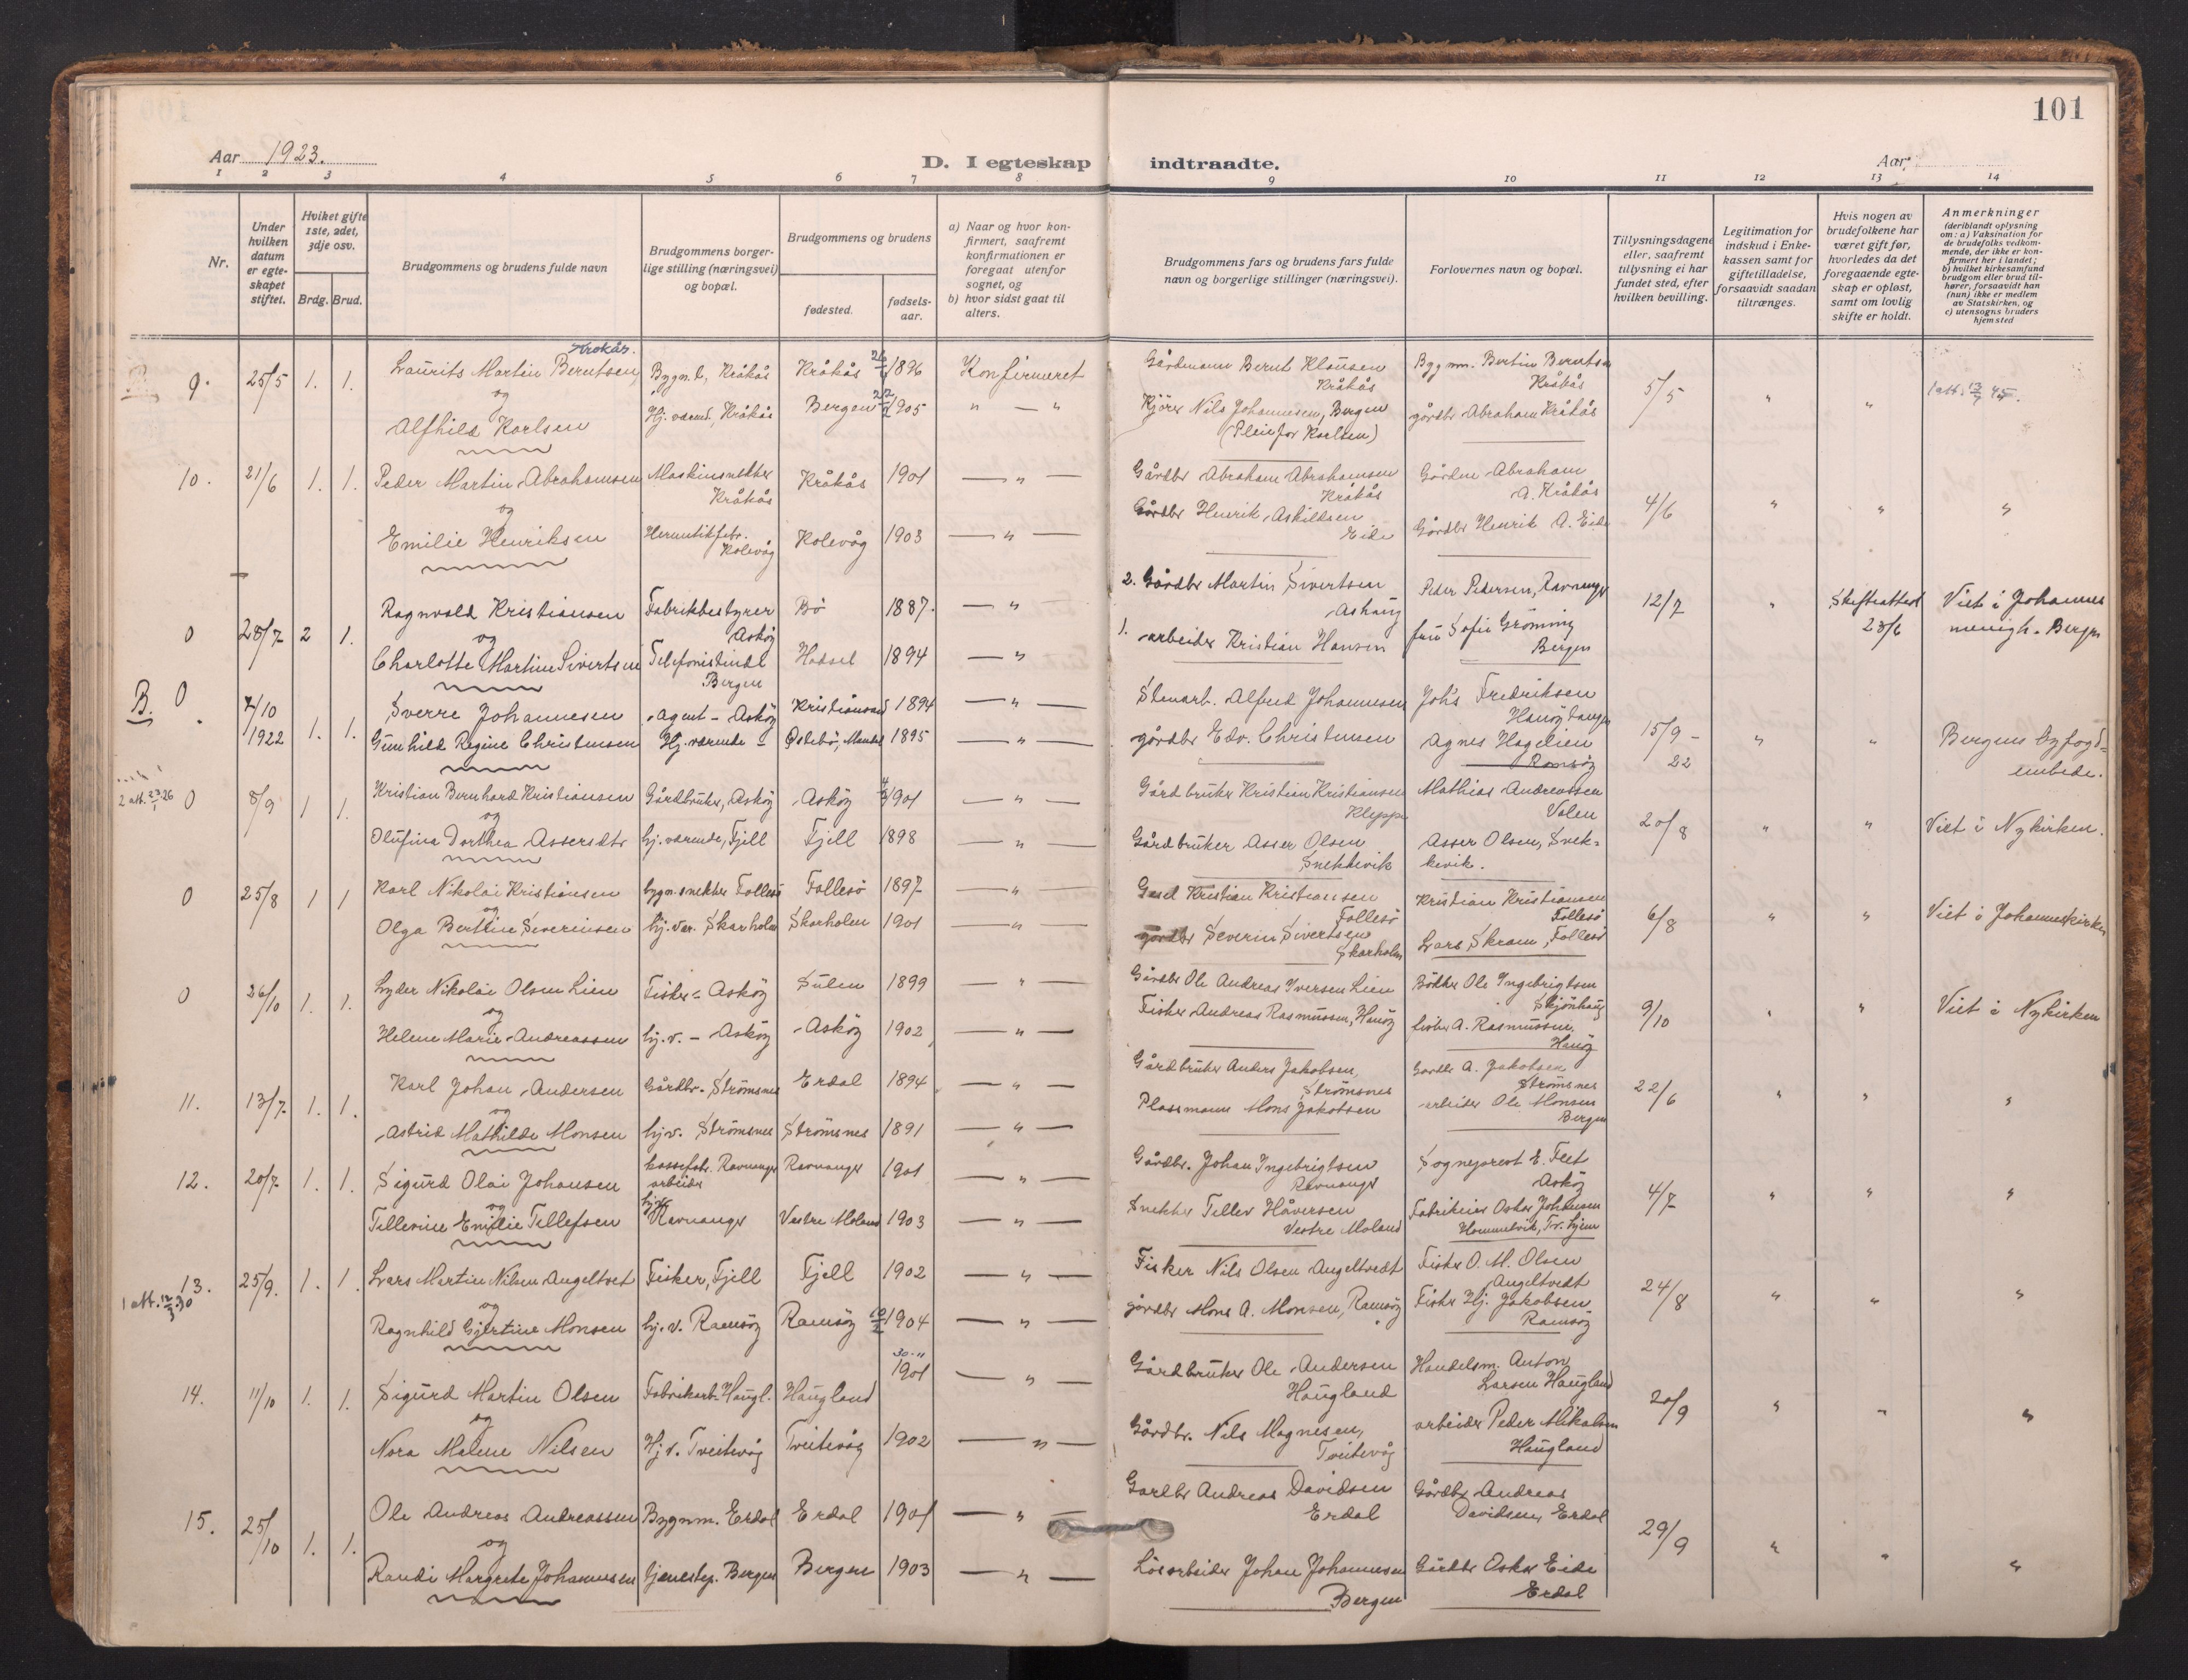 101
Aar 1923.
D. I egteskap indtraadte.
Aar
1 2 3 4 5 6 7 8 9 10 11 12 13 14
Nr.
Under hvilken datum er egteskapet stiftet.
Hvilket gifte 1ste, 2det, 3dje osv.
Brdg. Brud.
Brudgommens og brudens fulde navn
Brudgommens borgerlige stilling (næringsvei) og bopæl.
Brudgommens og brudens
fødested.
fødselsaar.
a) Naar og hvor konfirmert, saafremt konfirmationen er foregaat utenfor sognet, og
b) hvor sidst gaat til alters.
Brudgommens fars og brudens fars fulde navn og borgerlige stillinger (næringsvei).
Forlovernes navn og bopæl.
Tillysningsdagene eller, saafremt tillysning ei har fundet sted, efter hvilken bevilling.
Legitimation for indskud i Enkekassen samt for giftetilladelse, forsaavidt saadan tiltrænges.
Hvis nogen av brudefolkene har været gift før, hvorledes da det foregaaende egteskap er opløst, samt om lovlig skifte er holdt.
Anmerkninger (deriblandt oplysning om: a) Vaksination for de brudefolks vedkommende, der ikke er konfirmert her i landet; b) hvilket kirkesamfund brudgom eller brud tilhører, forsaavidt han (hun) ikke er medlem av Statskirken, og c) utensogns bruders hjemsted
Krokås.
9. 25/5 1. 1. Laurits Martin Berntsen Bygn.b, Kråkås Kråkås 1896 Konfirmeret Gårdmann Bernt Klausen Kråkås Bygnm. Bertin Berntsen Kråkås 5/5 " " 1 att. 13/7 45.
og
Alfhild Karlsen Hj. værend, Kråkås Bergen 22/2 1905 " — " Kjører Nils Johannesen, Bergen (Pleiefar Karlsen) gårdbr Abraham Kråkås
10. 21/6 1. 1. Peder Martin Abrahamsen Maskinsnekker Kråkås Kråkås 1901 — " — Gårdbr Abraham Abrahamsen Kråkås Gårdm Abraham A. Kråkås 4/6 " " "
og
Emilie Henriksen Hermetikfabr. Kolevåg Kolevåg 1903 — " — Gårdbr Henrik Askildsen Eide Gårdbr Henrik A. Eide
0 28/7 2 1. Ragnvald Kristiansen Fabrikbestyrer Askøy Bø 1887. — " — 2. Gårdbr Martin Sivertsen Ashaug Peder Pedersen, Ravnanger 12/7 " Skifteattest 23/6 Viet i Johannes menigh. Bergen
og
Charlotte Martine Sivertsen Telefonistinde Bergen Hadsel 1894 — " 1. arbeider Kristian Hansen fru Sofie Grøning Bergen
B. 0 7/10 1922 1. 1. Sverre Johannesen Agent - Askøy Kristiansand 1894 — " — Stenarb. Alfred Johannesen Joh's Fredriksen Hanøytangen 15/9 - 22 " " Bergens byfogdembede.
Gunhild Regine Christensen Hj. værende - Østebø, Mandal 1895 — " — gårdbr Edv. Christensen Agnes Hagelien Ramsøy
2 att. 23/1 26 0 8/9 1 1. Kristian Bernhard Kristiansen Gårdbruker, Askøy Askøy 1901 — " — Gårdbruker Kristian Kristiansen Kleppe Mathias Andreassen Valen 20/8 " " Viet i Nykirken.
og
Olufina Dorthea Assersdtr hj. værende, Fjell Fjell 1898 — " — Gårdbruker Asser Olsen Snekkevik Asser Olsen, Snekkevik.
0 25/8 1 1 Karl Nikolai Kristiansen bygn.snekker Follesø Follesø 1897 — " — Gård Kristian Kristiansen Follesø Kristian Kristiansen Follesø 6/8 " " Viet i Johanneskirken
og
Olga Bertine Severinsen hj. vær. Skarholm Skarholm 1901 — " — gårdbr Severin Sivertsen Skarholm Lars Skram, Follesø
0 26/10 1. 1. Lyder Nikolai Olsen Lien Fisker - Askøy Sulen 1899 — " — Gårdbr Ole Andreas Iversen Lien Bødker Ole Ingebrigtsen Skjønhaug 9/10 " " Viet i Nykirken
og
Helene Marie Andreassen hj.v. - Askøy Askøy 1902 — " — Fisker Andreas Rasmussen, Hanøy fisker A. Rasmussen. Hanøy
11. 13/7 1. 1. Karl Johan Andersen Gårdbr. Strømsnes Erdal 1894 — " — Gårdbruker Anders Jakobsen, Strømsnes Gardbr A. Jakobsen Strømsnes 22/6 " " "
og
Astrid Mathilde Monsen hjv. Strømsnes Strømsnes 1891 — " — Plassmann Mons Jakobsen arbeider Ole Monsen Bergen
12. 20/7 1. 1. Sigurd Olai Johansen kassefabr. arbeider Ravnanger Ravnanger 1901 — " — Gårdbr. Johan Ingebrigtsen Ravnanger Sogneprest E. Feet Askøy 4/7 " " "
og
Tellevine Emilie Tellefsen hjv Ravnanger Vestre Moland 1903 — " — Snekker Tellev Håversen Vestre Moland Fabrikeier Oskar Johansen Hommelvik, Tr.hjem
1 att. 12/3 30 13. 25/9. 1. 1 Lars Martin Nilsen Angeltvet Fisker, Fjell Fjell 1902 — " — Fisker Nils Olsen Angeltvedt Fisker O. M. Olsen Angeltvedt 24/8 " " "
og
Ragnhild Gjertine Monsen hj.v. Ramsøy Ramsøy 1904 — " — gårdbr Mons A. Monsen, Ramsøy Fisker Hj. Jakobsen Ramsøy
14. 11/10 1. 1. Sigurd Martin Olsen Fabrikarb. Haugl. Haugland 30-11 1901 — " — Gårdbruker Ole Andersen Haugland Handelsm. Anton Larsen Haugland 20/9 " " "
og
Nora Malene Nilsen Hj.v. Tveitevåg Tveitevåg 1902 — " — Gårdbr. Nils Magnesen, Tveitevåg arbeider Peder Mikalsen Haugland
15. 25/10 1. 1. Ole Andreas Andreassen Bygnm. Erdal Erdal 1901 — " — Gardbr Andreas Davidsen Erdal Gårdbr Andreas Davidsen, Erdal 29/9 " " "
og
Randi Margrete Johannesen tjenestep. Bergen Bergen 1903 — " — Løsarbeider Johan Johannesen Bergen Gårdbr Oskar Eide Erdal